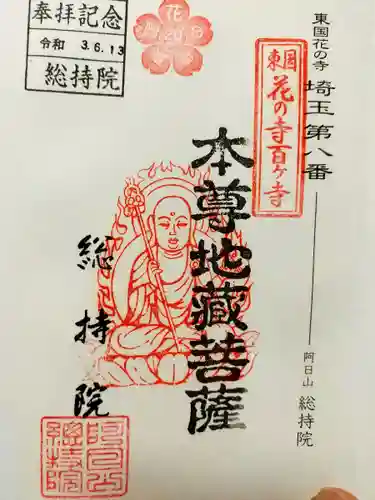 東国花の寺 埼玉第八番
阿日山 総持院
東国花の寺百ヶ寺
本尊地蔵菩薩
総持院
奉拝記念
令和 3.6.13
総持院